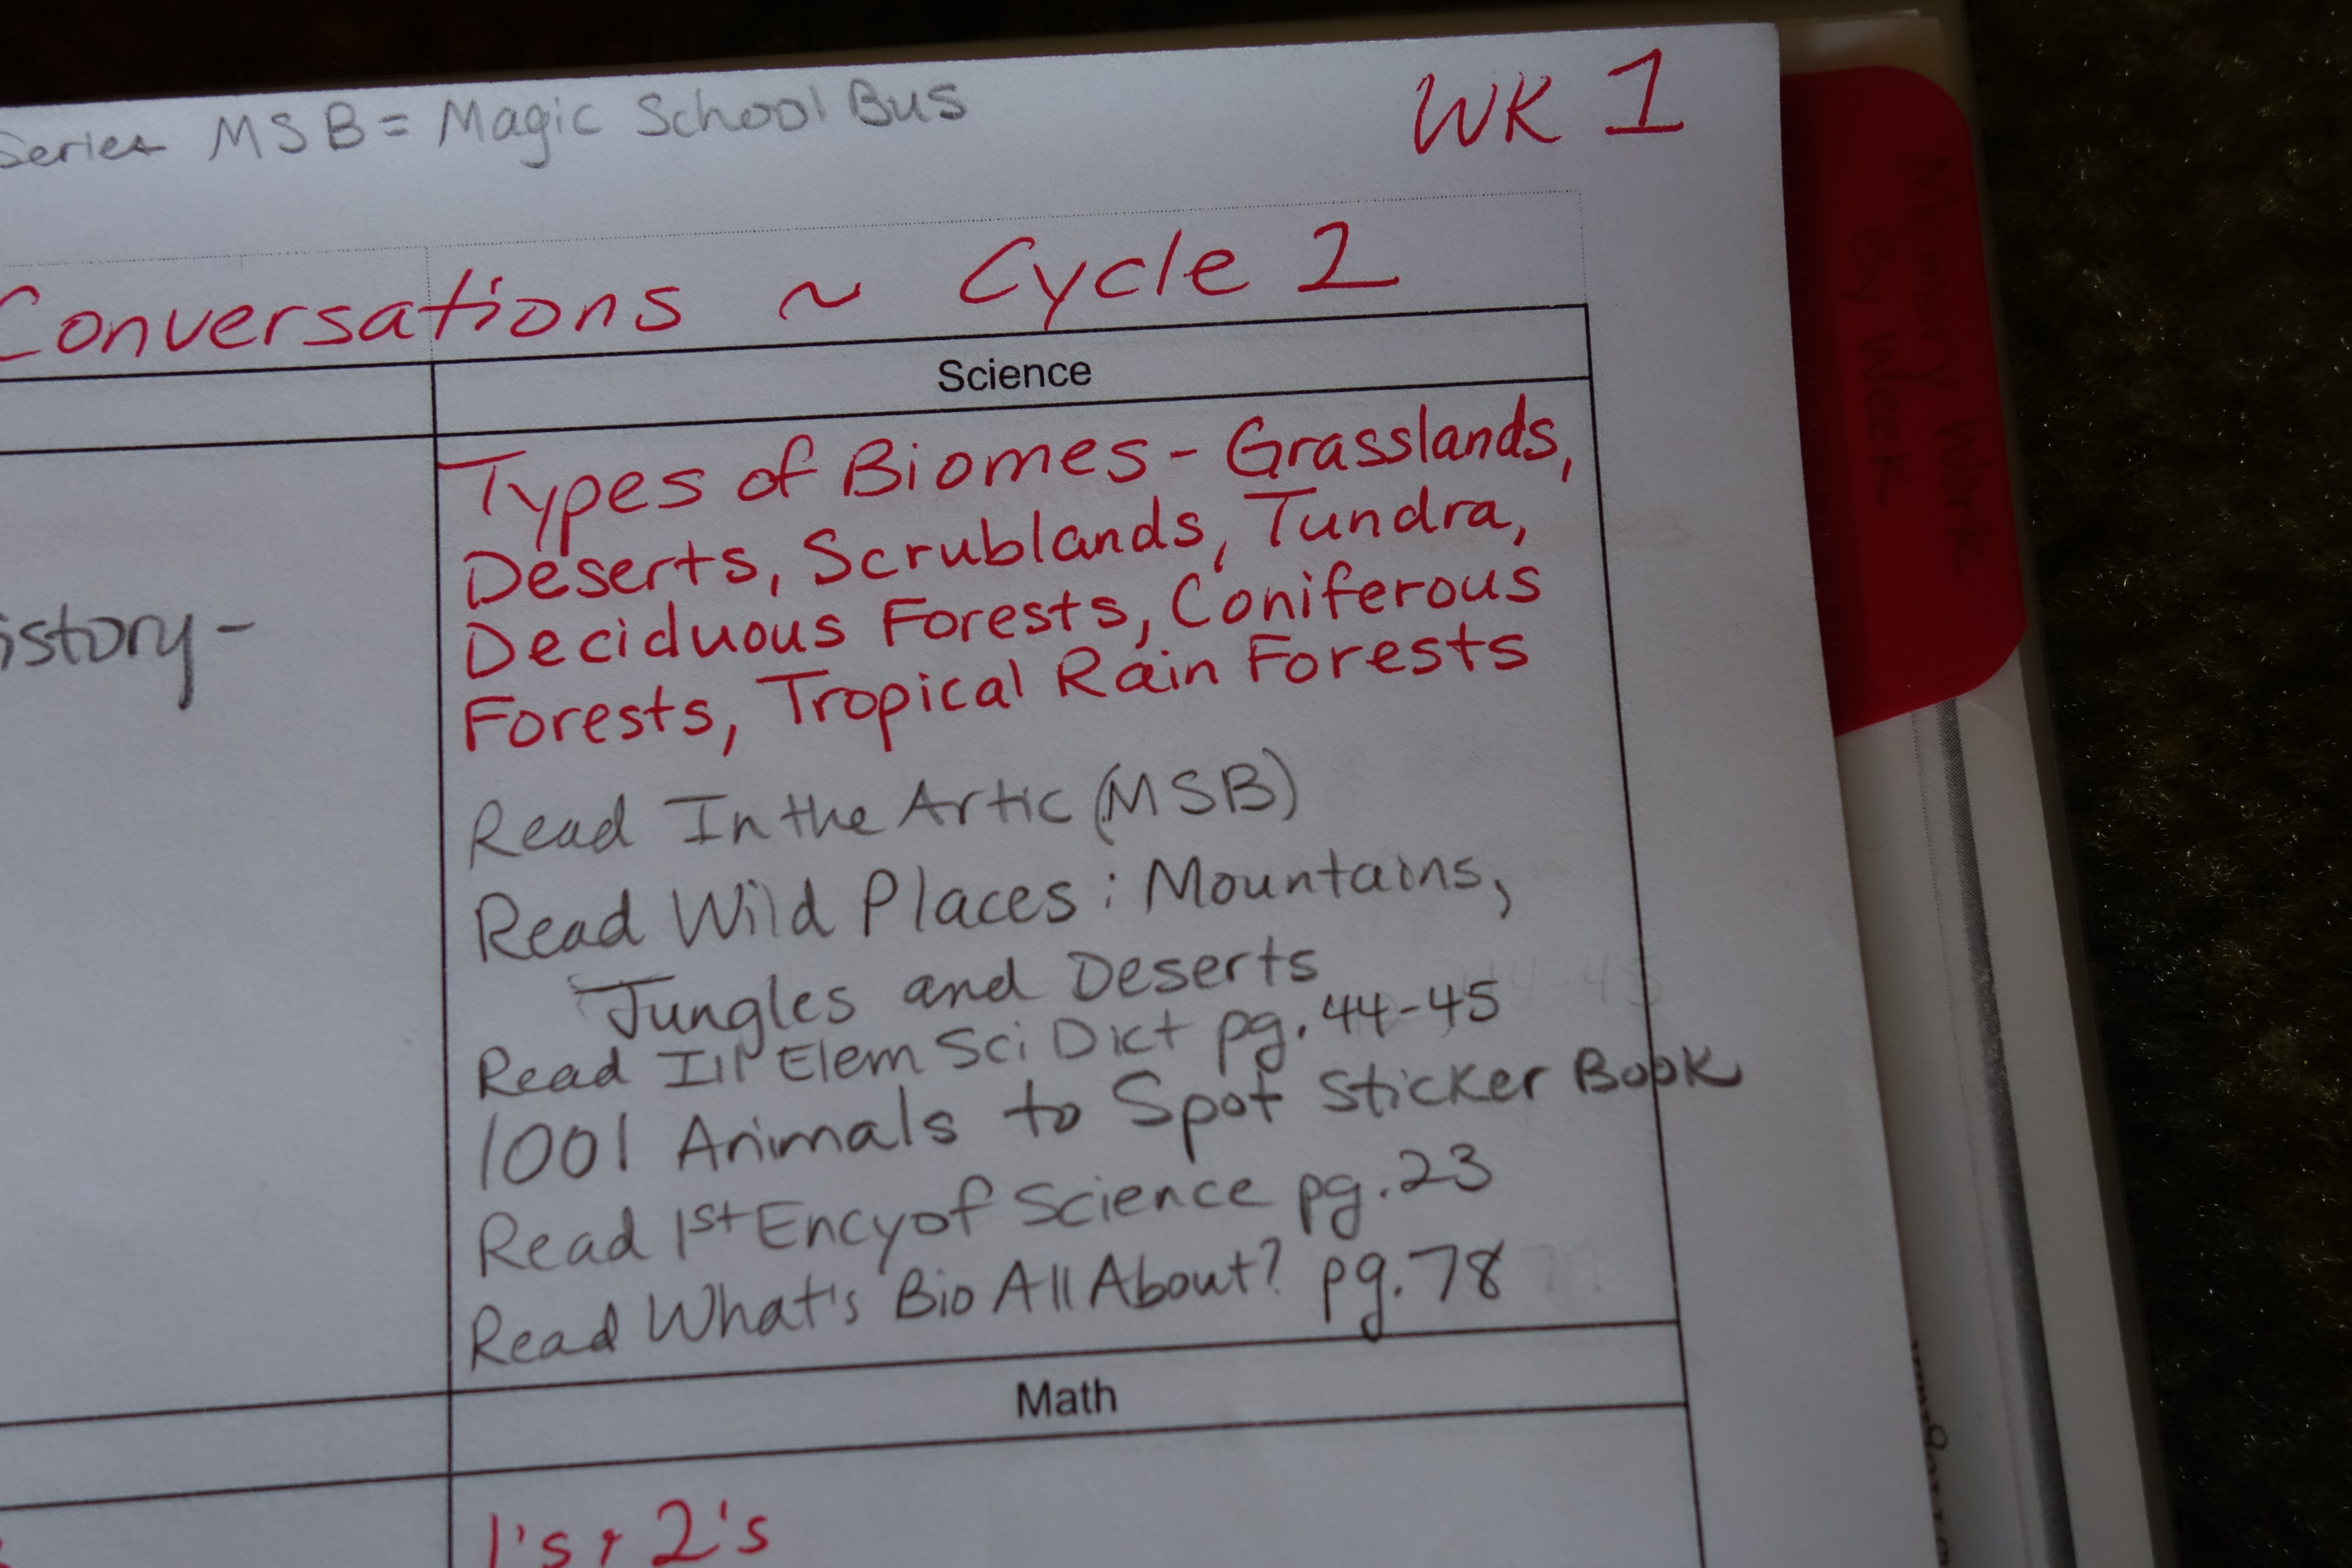 Series MSB = Magic School Bus
WK 1
Conversations ~ Cycle 2
Science
Types of Biomes - Grasslands,
Deserts, Scrublands, Tundra,
Deciduous Forests, Coniferous
Forests, Tropical Rain Forests
istory-
Read In the Artic (MSB)
Read Wild Places: Mountains,
Jungles and Deserts
Read Ill Elem Sci Dict pg. 44-45
1001 Animals to Spot Sticker Book
Read 1st Ency of Science pg. 23
Read What's Bio All About? pg. 78
Math
1's + 2's
Memory Work
By Week